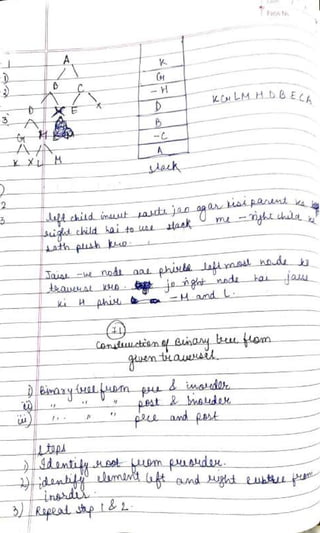 A
B C
D X E X
G H
K X L M
K
G
-H
D
B
-C
A
stack
K G L M H D B E C A
left child insert karte jao agar kisi parent ka
right child hai to use stack me - right child ke
sath push kro.
Jaise -ve node aae phirse left most node ko
traverse kro. jo right node hai jaise
ki H phir -M and L.
7.1
Construction of Binary tree from
given traversel.
i) Binary tree from pre & inorder
ii) " " " post & inorder
iii) " " " pree and post
steps
1) Identify root from preorder.
2) identify element left and right subtree from
inorder.
3) Repeat step 1 & 2.